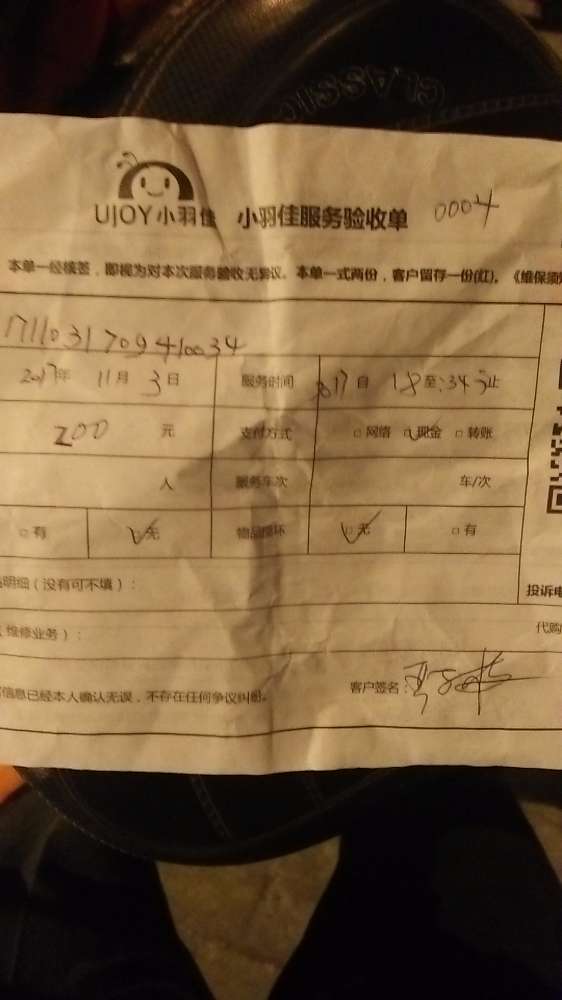 CLASSIC
UJOY小羽佳 小羽佳服务验收单 0004
本单一经核签，即视为对本次服务验收无异议。本单一式两份，客户留存一份(红)。《维保须
1711031709410034
2017年 11月 3日 服务时间 自 18 至:34 止
200 元 支付方式 □网络 ☑现金 □转账
人 服务车次 车/次
□有 ☑无 物品损坏 ☑无 □有
明细（没有可不填）：
投诉电
维修业务）：
代购
信息已经本人确认无误，不存在任何争议纠纷。 客户签名：